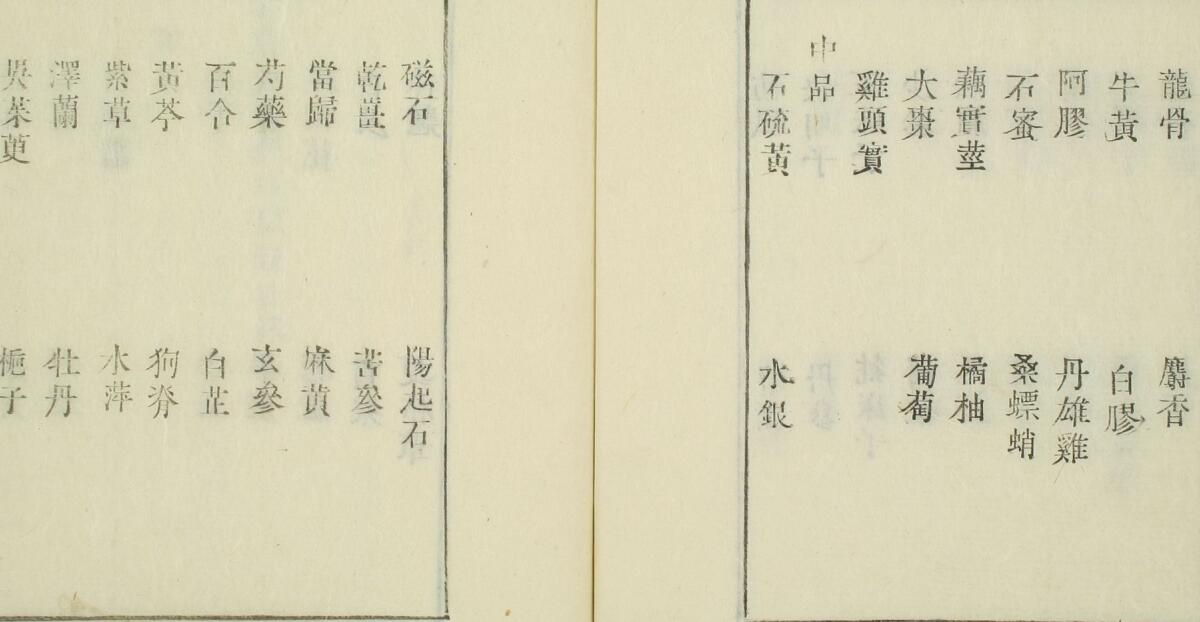 龍骨　麝香
牛黃　白膠
阿膠　丹雄雞
石蜜　桑螵蛸
藕實莖　橘柚
大棗　葡萄
雞頭實
中品
石硫黃　水銀
磁石　陽起石
乾薑　苦參
當歸　麻黃
芍藥　玄參
百合　白芷
黃芩　狗脊
紫草　水萍
澤蘭　牡丹
吳茱萸　梔子